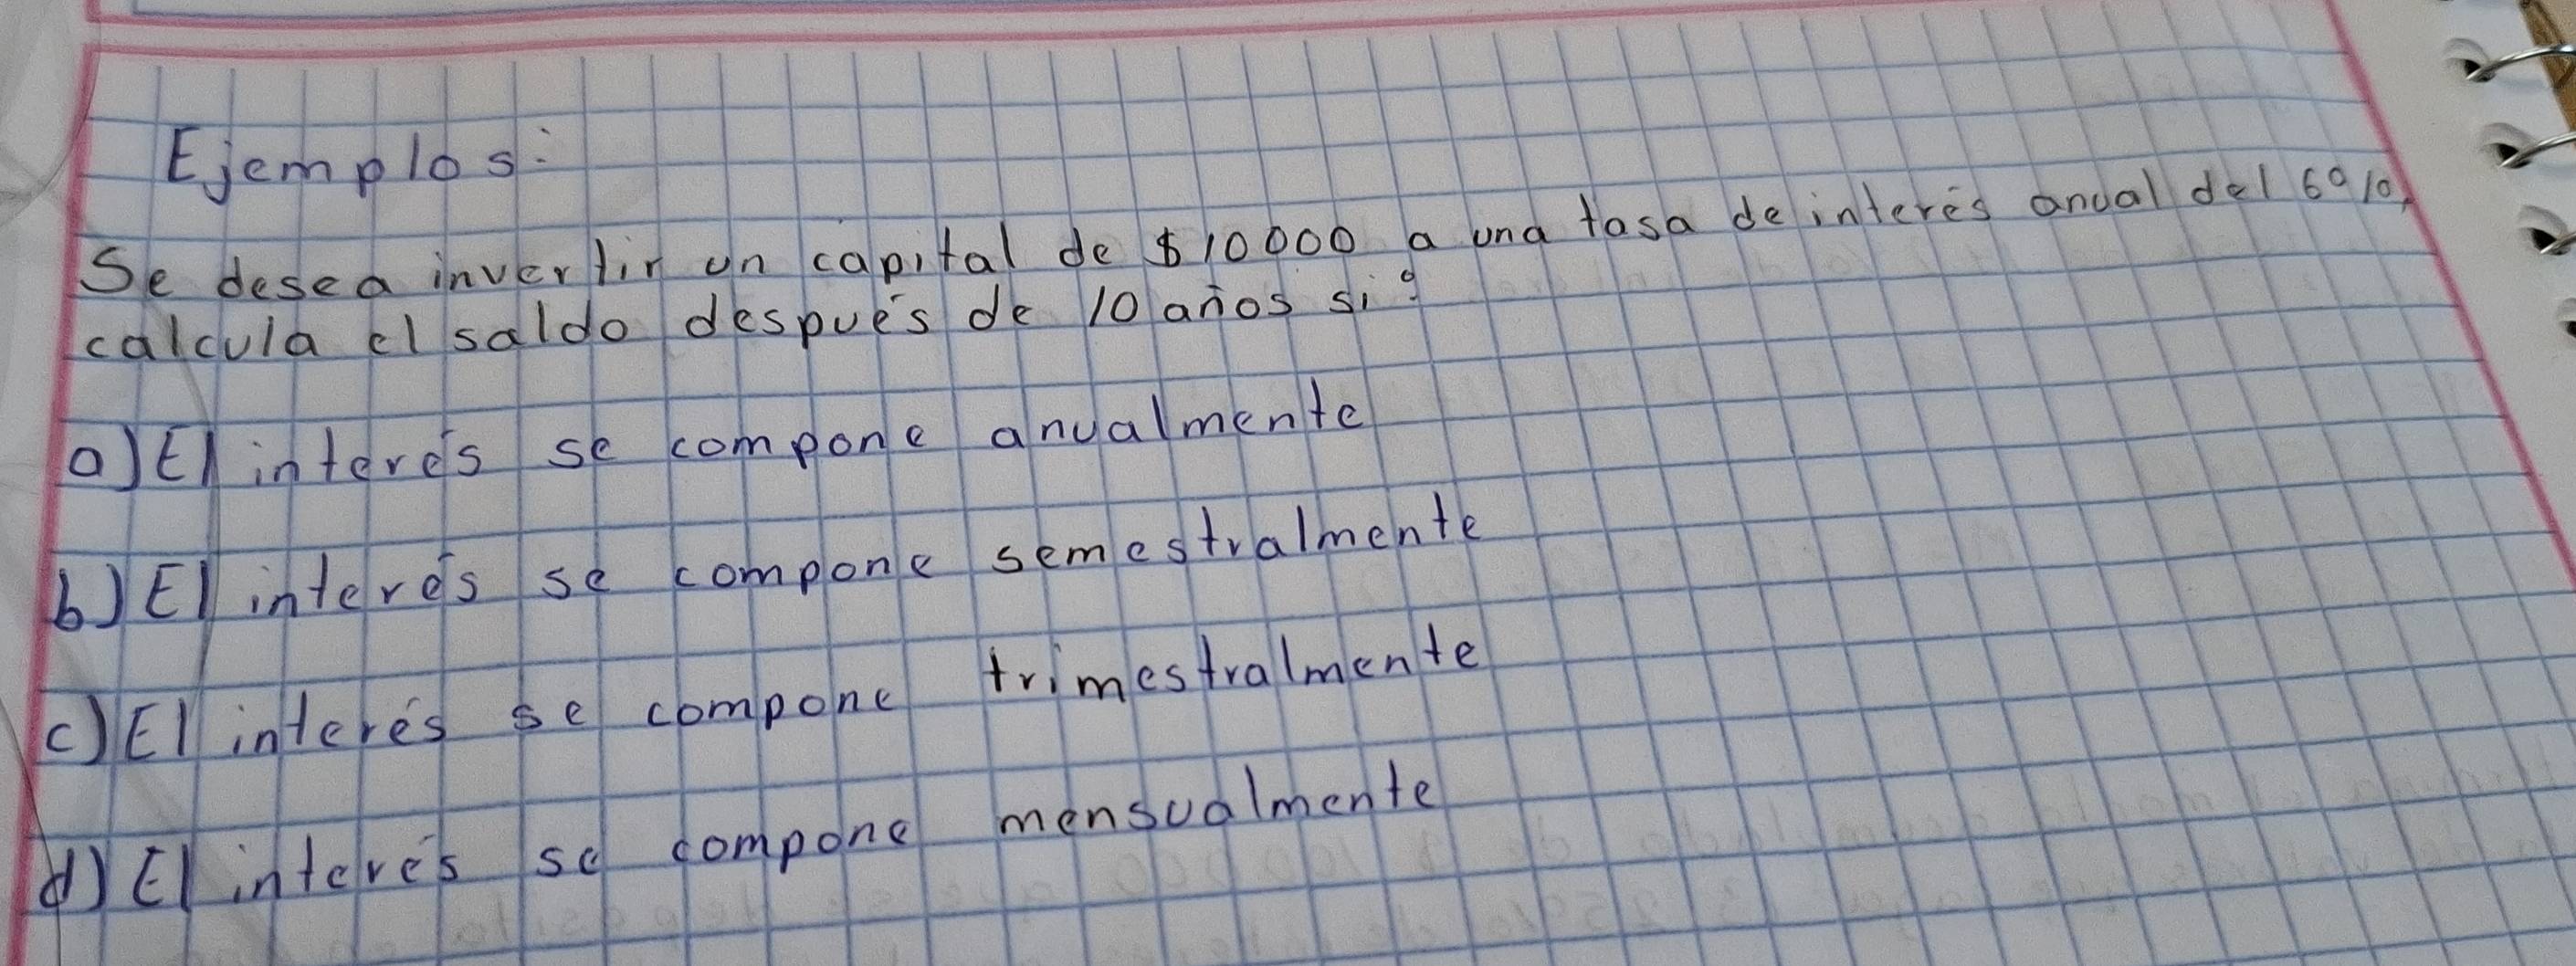 Ejemplos:
Se desea invertir un capital de $10000 a una tasa de interés anual del 6%,
calcula el saldo después de 10 años si:
a) El interés se compone anualmente
b) El interés se compone semestralmente
c) El interés se compone trimestralmente
d) El interés se compone mensualmente